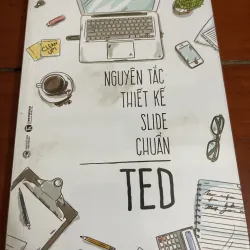 CLEAN UP!
NGUYÊN TẮC
THIẾT KẾ
SLIDE
CHUẨN
TED